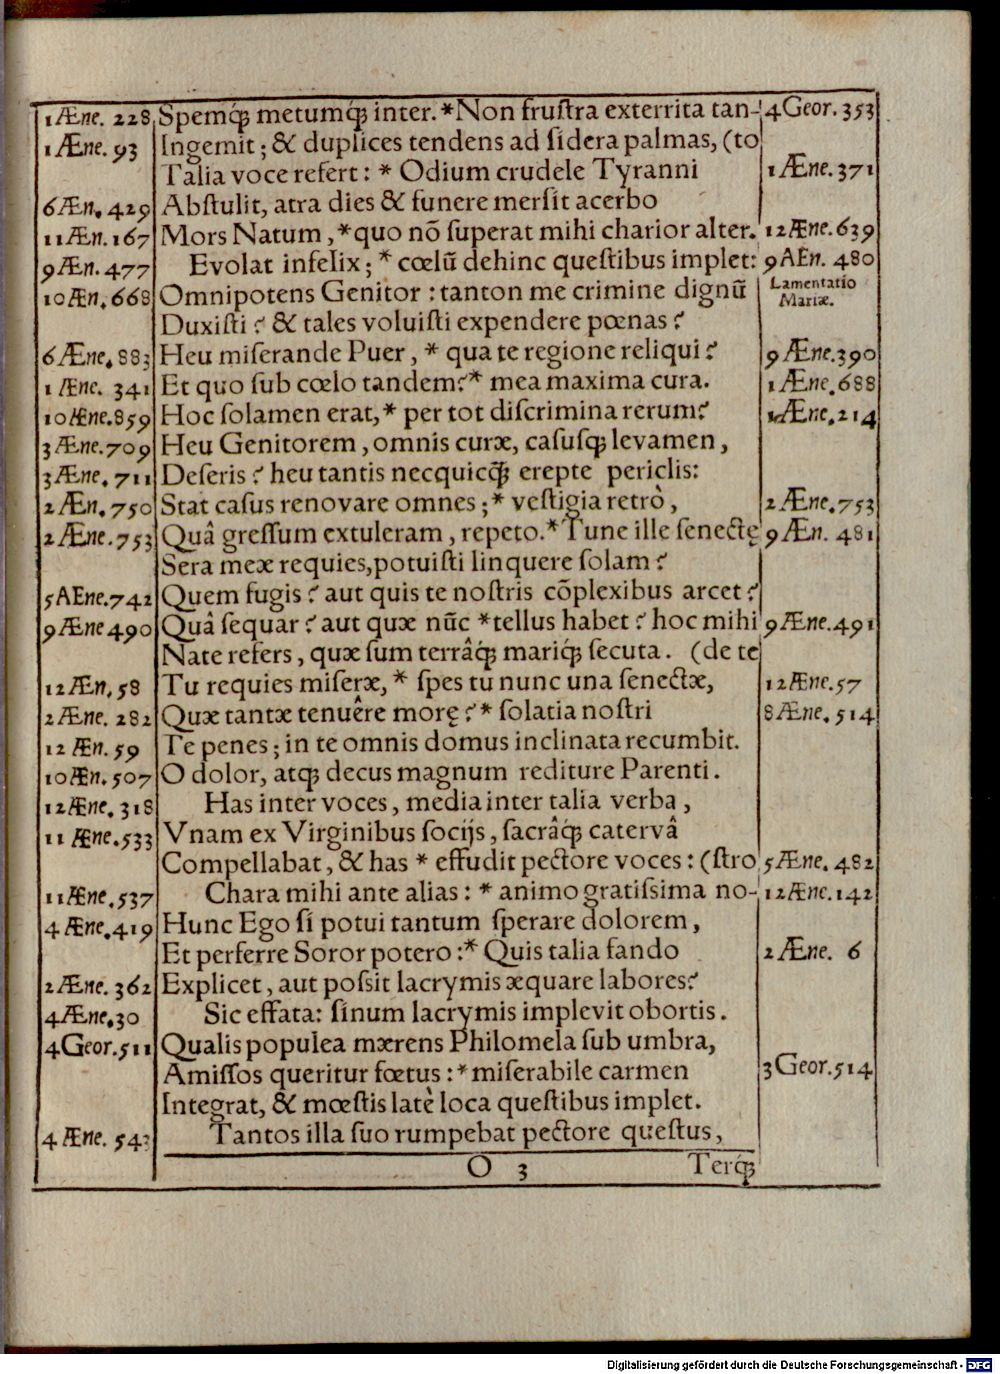 1Æne. 228 Spemq́; metumq́; inter. *Non frustra exterrita tan- 4Geor. 353
1Æne. 93 Ingemit; & duplices tendens ad sidera palmas, (to
Talia voce refert: * Odium crudele Tyranni 1Æne. 371
6Æn. 429 Abstulit, atra dies & funere mersit acerbo
11Æn. 167 Mors Natum, *quo nõ superat mihi charior alter. 12Æne. 639
9Æn. 477 Evolat infelix; * cœlũ dehinc questibus implet: 9AEn. 480
10Æn. 668 Omnipotens Genitor: tanton me crimine dignũ Lamentatio Mariæ.
Duxisti? & tales voluisti expendere pœnas?
6Æne. 883 Heu miserande Puer, * qua te regione reliqui? 9Æne. 390
1Æne. 341 Et quo sub cœlo tandem? * mea maxima cura. 1Æne. 688
10Æne. 859 Hoc solamen erat, * per tot discrimina rerum? Æne. 214
3Æne. 709 Heu Genitorem, omnis curæ, casusq; levamen,
3Æne. 711 Deseris? heu tantis necquicq̃; erepte periclis:
2Æn. 750 Stat casus renovare omnes; * vestigia retrò, 2Æne. 753
2Æne. 753 Quâ gressum extuleram, repeto. * Tune ille senectę 9Æn. 481
Sera meæ requies, potuisti linquere solam?
5AEne. 742 Quem fugis? aut quis te nostris cõplexibus arcet?
9Æne 490 Quâ sequar? aut quæ nũc * tellus habet? hoc mihi 9Æne. 491
Nate refers, quæ sum terrâq́; mariq́; secuta. (de te
12Æn. 58 Tu requies miseræ, * spes tu nunc una senectæ, 12Æne. 57
2Æne. 282 Quæ tantæ tenuêre morę? * solatia nostri 8Æne. 514
12 Æn. 59 Te penes; in te omnis domus inclinata recumbit.
10Æn. 507 O dolor, atq; decus magnum rediture Parenti.
12Æne. 318 Has inter voces, media inter talia verba,
11 Æne. 533 Vnam ex Virginibus socijs, sacrâq́; catervâ
Compellabat, & has * effudit pectore voces: (stro 5Æne. 482
11Æne. 537 Chara mihi ante alias: * animo gratissima no- 12Æne. 142
4Æne. 419 Hunc Ego si potui tantum sperare dolorem,
Et perferre Soror potero: * Quis talia fando 2Æne. 6
2Æne. 362 Explicet, aut possit lacrymis æquare labores?
4Æne. 30 Sic effata: sinum lacrymis implevit obortis.
4Geor. 511 Qualis populea mærens Philomela sub umbra,
Amissos queritur fœtus: * miserabile carmen 3Geor. 514
Integrat, & mœstis latè loca questibus implet.
4Æne. Tantos illa suo rumpebat pectore questus,
O 3 Terq́;
Digitalisierung gefördert durch die Deutsche Forschungsgemeinschaft - DFG